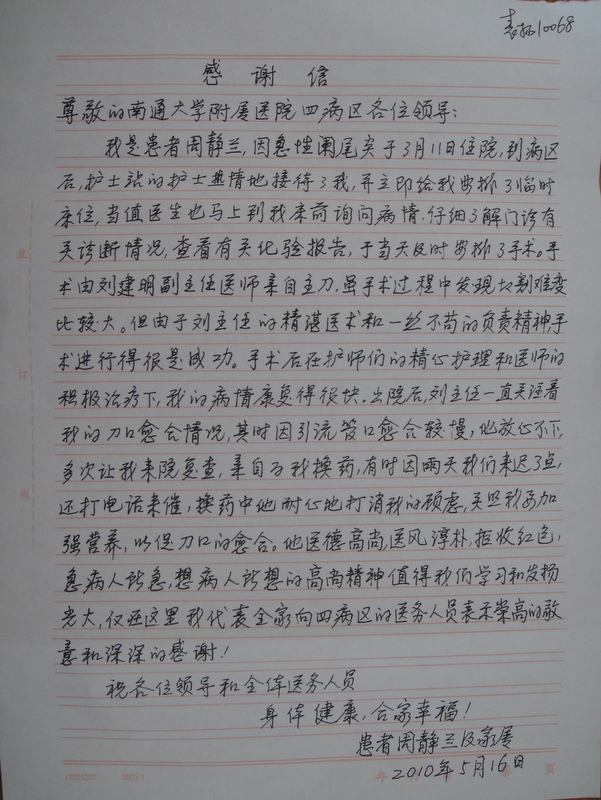 表扬10068
感谢信
尊敬的南通大学附属医院四病区各位领导：
我是患者周静兰，因急性阑尾炎于3月11日住院，到病区
后，护士站的护士热情地接待了我，并立即给我安排了临时
床位，当值医生也马上到我床前询问病情，仔细了解门诊有
关诊断情况，查看有关化验报告，于当天及时安排了手术。手
术由刘建明副主任医师亲自主刀，虽手术过程中发现切割难度
比较大。但由于刘主任的精谌医术和一丝不苟的负责精神，手
术进行得很是成功。手术后在护师们的精心护理和医师的
积极治疗下，我的病情康复得很快。出院后，刘主任一直关注着
我的刀口愈合情况，其时因引流管口愈合较慢，他放心不下，
多次让我来院复查，亲自为我换药，有时因两天我们来迟了点，
还打电话来催，换药中他耐心地打消我的顾虑，关照我要加
强营养，以促刀口的愈合。他医德高尚，医风淳朴，拒收红包，
急病人所急，想病人所想的高尚精神值得我们学习和发扬
光大，仅在这里我代表全家向四病区的医务人员表示崇高的敬
意和深深的感谢！
祝各位领导和全体医务人员
身体健康，合家幸福！
患者周静兰及家属
2010年5月16日
装
订
线
年 第 页